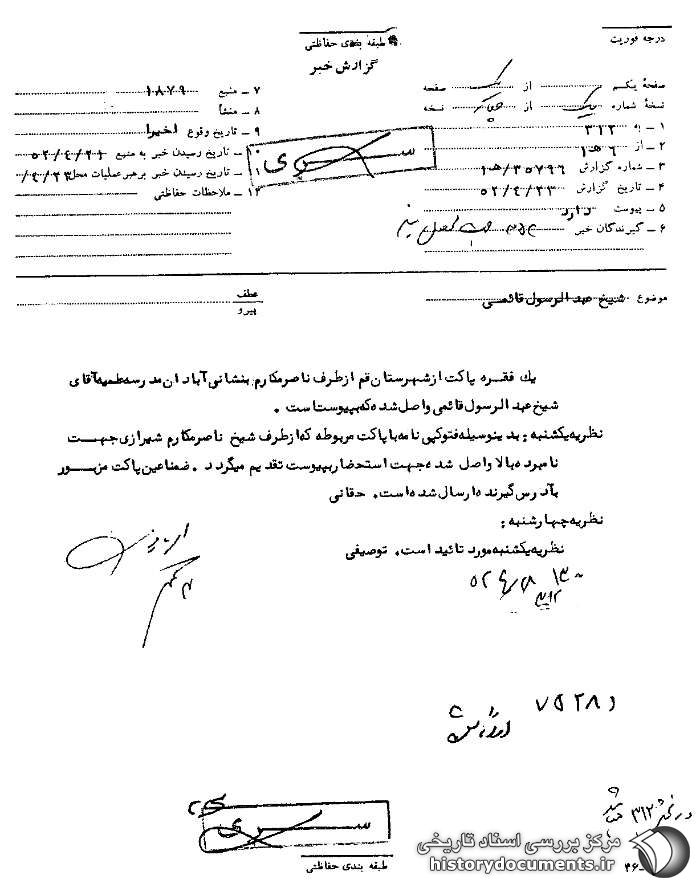 درجه فوریت
طبقه بندی حفاظتی
گزارش خبر
صفحهٔ یکم یک از یک صفحه
نسخهٔ شماره یک از چهار نسخه
۱ - به ۳۱۲
۲ - از ۶ هـ ۱
۳ - شماره گزارش ۳۵۷۹۶/هـ۱
۴ - تاریخ گزارش ۵۲/۴/۲۳
۵ - پیوست دارد
۶ - گیرندگان خبر
۷ - منبع ۱۸۷۹
۸ - منشأ
۹ - تاریخ وقوع اخیرا
۱۰ - تاریخ رسیدن خبر به منبع ۵۲/۴/۲۱
۱۱ - تاریخ رسیدن خبر برهبر عملیات محل ۴/۲۳/
۱۲ - ملاحظات حفاظتی
سری
موضوع شیخ عبدالرسول قائمی
عطف
پیرو
یك فقره پاکت از شهرستان قم از طرف ناصر مکارم بنشانی آبادان مدرسه علمیه آقای
شیخ عبدالرسول قائمی واصل شده که بپیوست است .
نظریه یکشنبه : بدینوسیله فتوکپی نامه با پاکت مربوطه که از طرف شیخ ناصر مکارم شیرازی جهت
نامبرده بالا واصل شده جهت استحضار بپیوست تقدیم میگردد . ضمنا عین پاکت مزبور
بآدرس گیرنده ارسال شده است . حقانی
نظریه چهارشنبه :
نظریه یکشنبه مورد تائید است . توصیفی
۳۱۲
سری
طبقه بندی حفاظتی
۳۱۲
مرکز بررسی اسناد تاریخی
historydocuments.ir